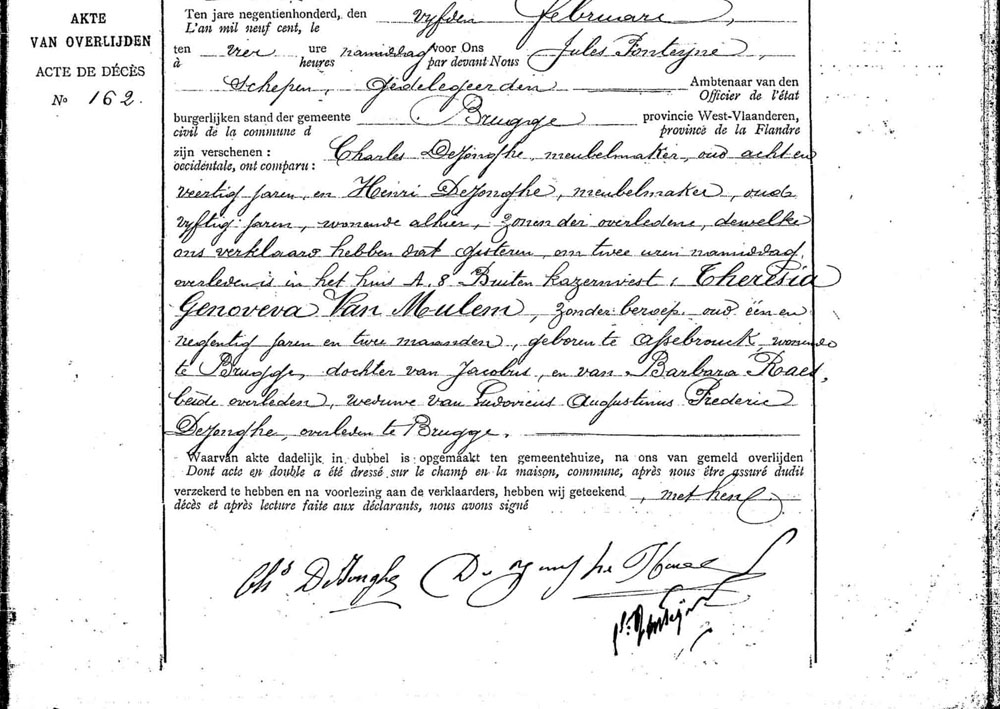 AKTE
VAN OVERLIJDEN
ACTE DE DÉCÈS
No 162.
Ten jare negentienhonderd, den vyfden februari,
L'an mil neuf cent, le
ten vier ure namiddag voor Ons Jules Fonteyne,
à heures par devant Nous
Schepen, gedelegeerden Ambtenaar van den
Officier de l'état
burgerlijken stand der gemeente Brugge provincie West-Vlaanderen,
civil de la commune d province de la Flandre
zijn verschenen : Charles DeJonghe, meubelmaker, oud acht en
occidentale, ont comparu :
veertig jaren, en Henri DeJonghe, meubelmaker, oud
vyftig jaren, wonende alhier, zonen der overledene, dewelke
ons verklaard hebben dat gisteren, om twee uren namiddag,
overleden is in het huis A. 8 Buiten kazernvest, Theresia
Genoveva Van Mulem, zonder beroep, oud een en
negentig jaren en twee maanden, geboren te Assebrouck, wonende
te Brugge, dochter van Jacobus, en van Barbara Raes,
beide overleden, weduwe van Ludovicus Augustinus Frederic
DeJonghe, overleden te Brugge.
Waarvan akte dadelijk in dubbel is opgemaakt ten gemeentehuize, na ons van gemeld overlijden
Dont acte en double a été dressé sur le champ en la maison, commune, après nous être assuré dudit
verzekerd te hebben en na voorlezing aan de verklaarders, hebben wij geteekend, met hen
décès et après lecture faite aux déclarants, nous avons signé
Chs DeJonghe De Jonghe Henri
Js. Fonteyne